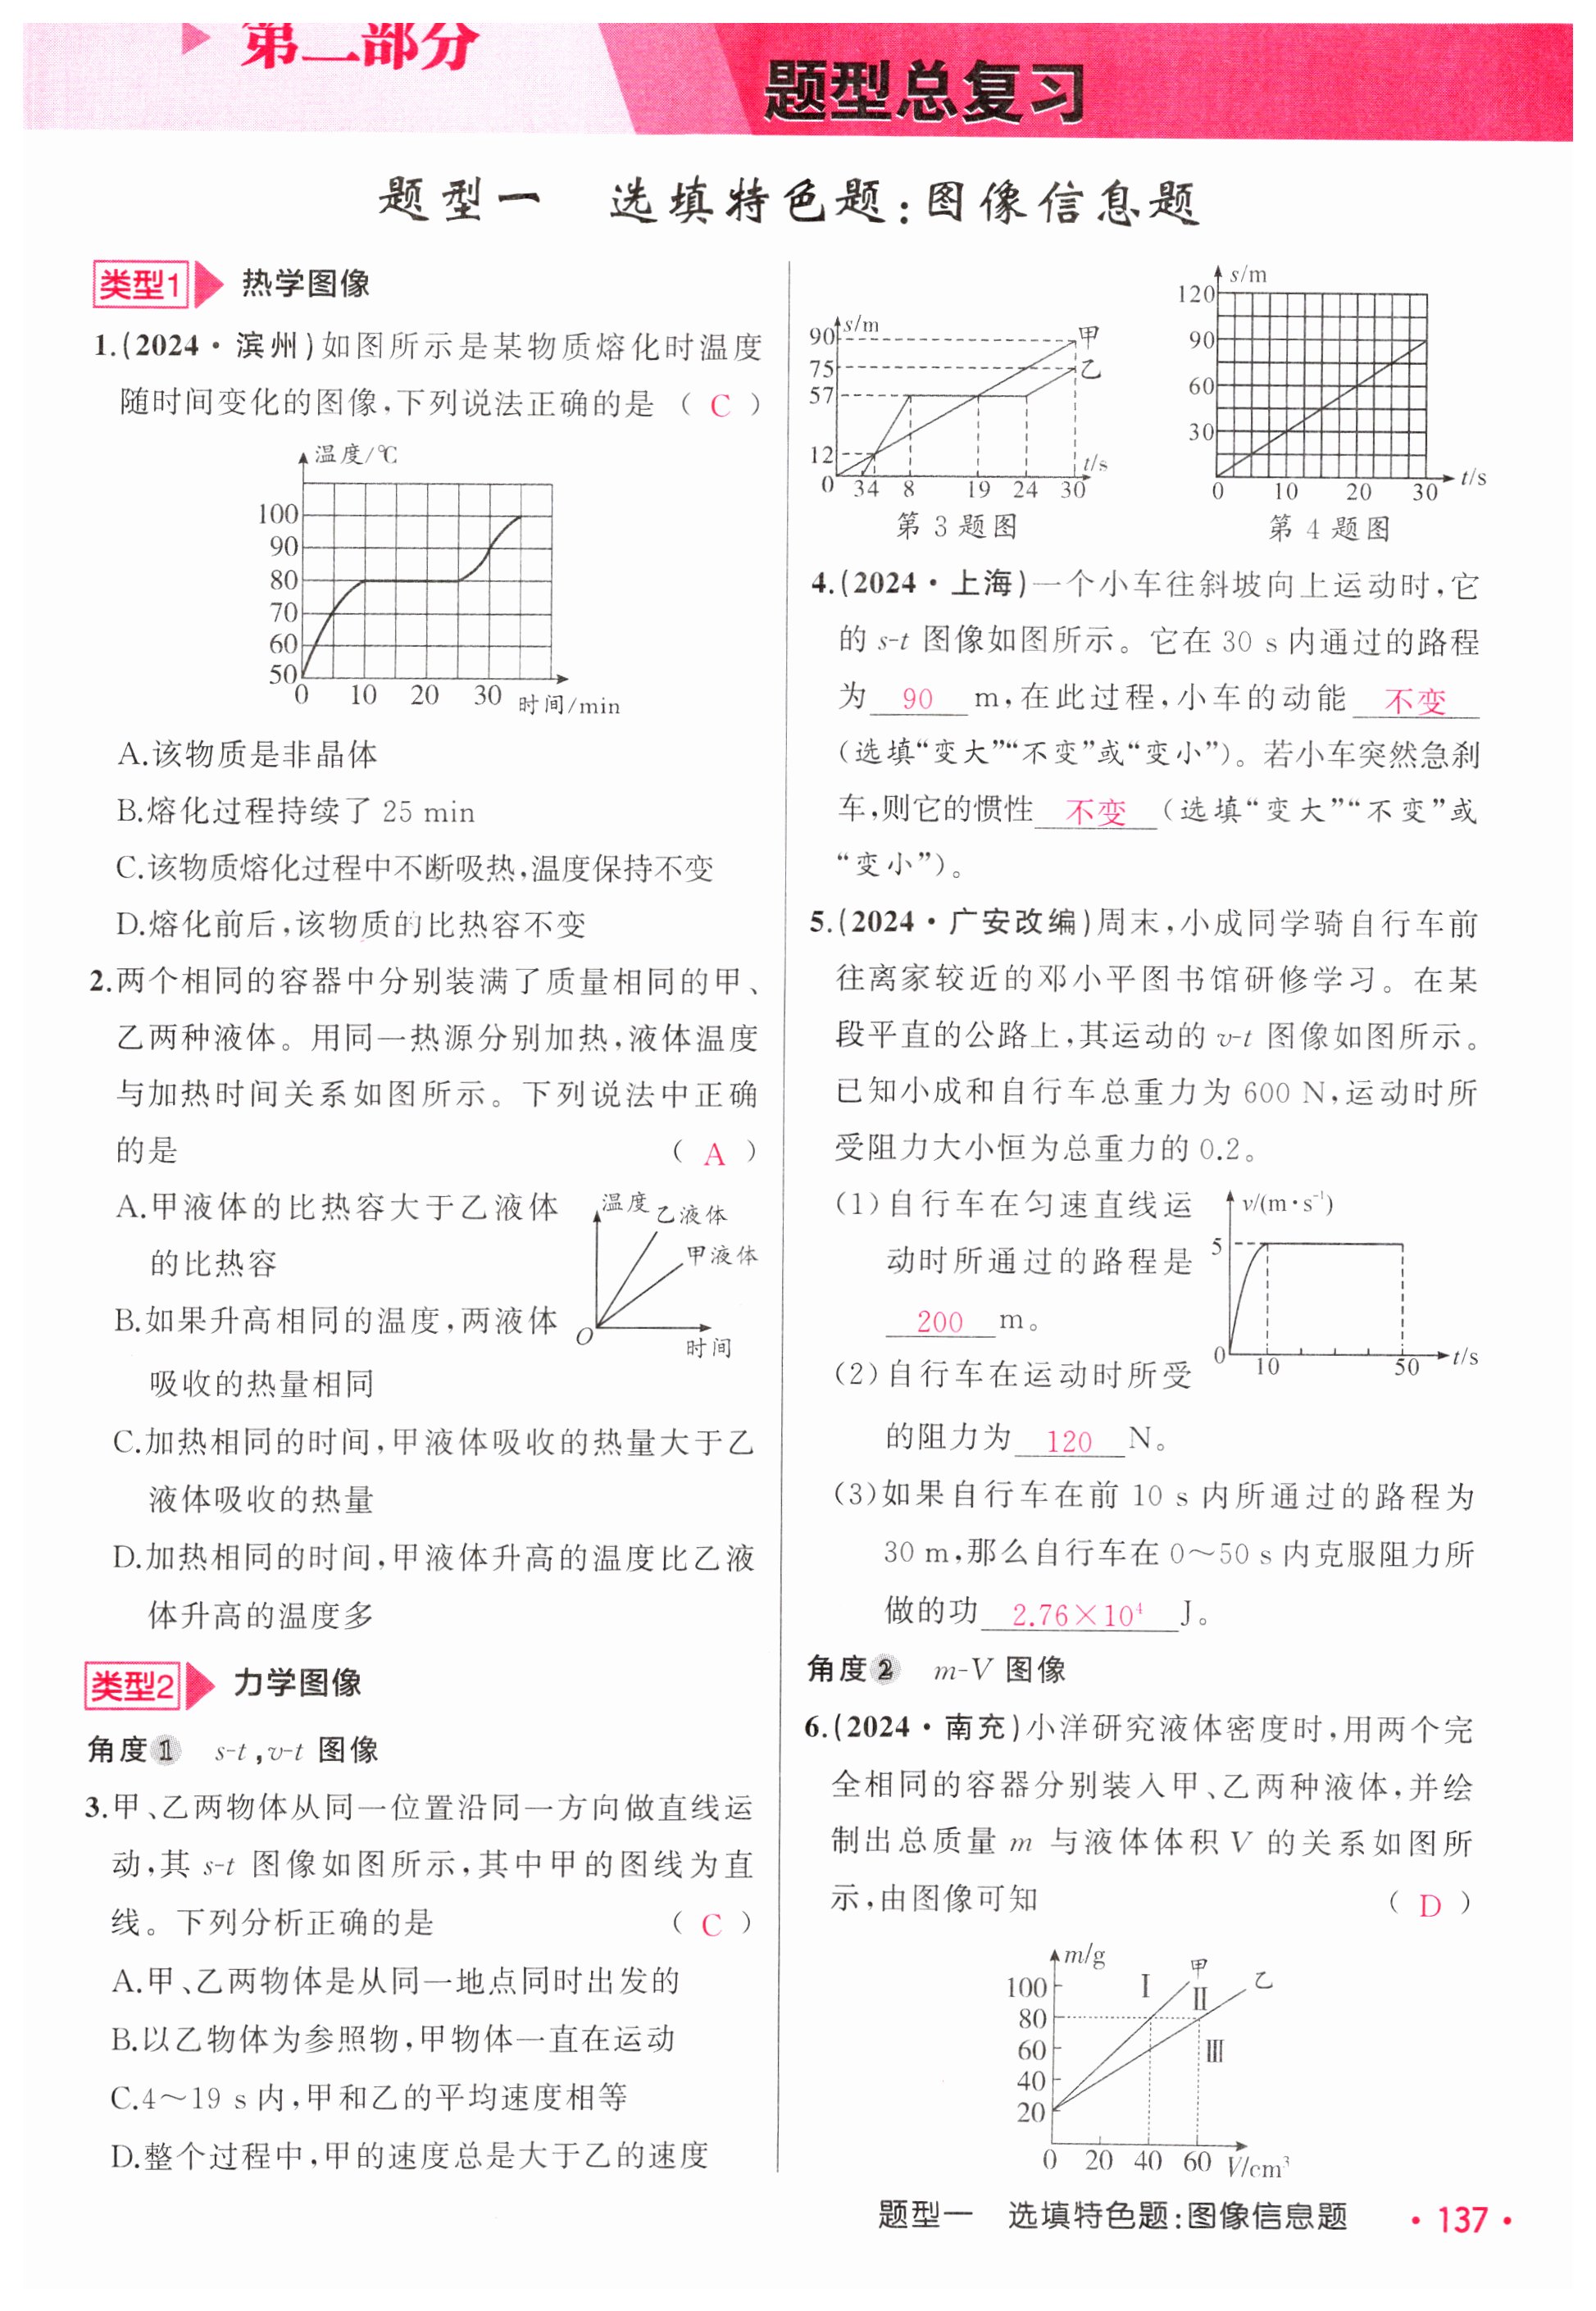 第二部分
题型总复习
题型一 选填特色题:图像信息题
类型1 热学图像
1.(2024·滨州)如图所示是某物质熔化时温度
随时间变化的图像,下列说法正确的是 ( C )
温度/℃
100
90
80
70
60
50
0 10 20 30 时间/min
A.该物质是非晶体
B.熔化过程持续了 25 min
C.该物质熔化过程中不断吸热,温度保持不变
D.熔化前后,该物质的比热容不变
2.两个相同的容器中分别装满了质量相同的甲、
乙两种液体。用同一热源分别加热,液体温度
与加热时间关系如图所示。下列说法中正确
的是 ( A )
A.甲液体的比热容大于乙液体
的比热容
B.如果升高相同的温度,两液体
吸收的热量相同
温度 乙液体
甲液体
O
时间
C.加热相同的时间,甲液体吸收的热量大于乙
液体吸收的热量
D.加热相同的时间,甲液体升高的温度比乙液
体升高的温度多
类型2 力学图像
角度1 s-t,v-t 图像
3.甲、乙两物体从同一位置沿同一方向做直线运
动,其 s-t 图像如图所示,其中甲的图线为直
线。下列分析正确的是 ( C )
A.甲、乙两物体是从同一地点同时出发的
B.以乙物体为参照物,甲物体一直在运动
C.4～19 s 内,甲和乙的平均速度相等
D.整个过程中,甲的速度总是大于乙的速度
s/m
90 甲
75 乙
57
12
t/s
0 3 4 8 19 24 30
第 3 题图
s/m
120
90
60
30
0 10 20 30 t/s
第 4 题图
4.(2024·上海)一个小车往斜坡向上运动时,它
的 s-t 图像如图所示。它在 30 s 内通过的路程
为 90 m,在此过程,小车的动能 不变
(选填“变大”“不变”或“变小”)。若小车突然急刹
车,则它的惯性 不变 (选填“变大”“不变”或
“变小”)。
5.(2024·广安改编)周末,小成同学骑自行车前
往离家较近的邓小平图书馆研修学习。在某
段平直的公路上,其运动的 v-t 图像如图所示。
已知小成和自行车总重力为 600 N,运动时所
受阻力大小恒为总重力的 0.2。
(1)自行车在匀速直线运
动时所通过的路程是
200 m。
(2)自行车在运动时所受
的阻力为 120 N。
v/(m·s⁻¹)
5
0 10 50 t/s
(3)如果自行车在前 10 s 内所通过的路程为
30 m,那么自行车在 0～50 s 内克服阻力所
做的功 2.76×10⁴ J。
角度2 m-V 图像
6.(2024·南充)小洋研究液体密度时,用两个完
全相同的容器分别装入甲、乙两种液体,并绘
制出总质量 m 与液体体积 V 的关系如图所
示,由图像可知 ( D )
m/g
甲
乙
Ⅰ
Ⅱ
Ⅲ
100
80
60
40
20
0 20 40 60 V/cm³
题型一 选填特色题:图像信息题 ·137·